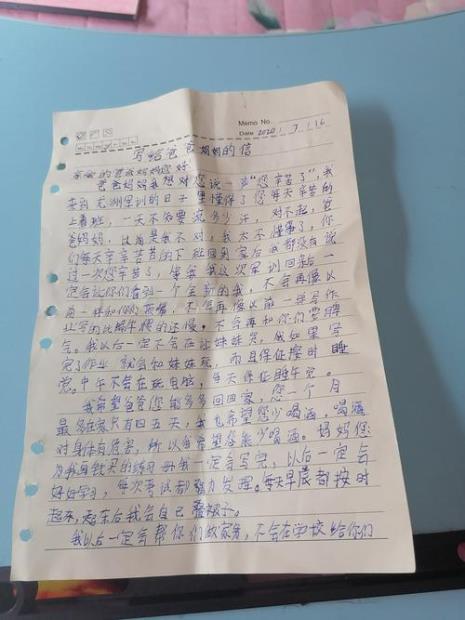 Memo No.
Date 2020 / 7 / 16
写给爸爸妈妈的信
亲爱的爸爸妈妈您好
爸爸妈妈我想对您说一声“您辛苦了”，我
来到 训的日子里懂得了您每天辛苦的
上着班，一天不知要流多少汗，对不起，爸
爸妈妈，以前是我不对，我太不懂事了，你
们每天辛辛苦苦的下班回到家后我都没有说
过一次您辛苦了，等我这次军训回来后一
定会让你们看到一个全新的我，不会再像以
前一样和你们顶嘴，不会再像以前一样写作
业写的比蜗牛慢的还慢。不会再和你们耍脾
气。我以后一定不会在让妹妹哭，我如果写
完了作业就会和妹妹玩，而且保证按时睡
觉。中午不会在玩电脑，每天保证睡午觉。
我希望爸爸您能多多回回家，您一个月
最多在家只有四五天，我也希望您少喝酒，喝酒
对身体有危害，所以我希望您能少喝酒。妈妈您
为我身 的练习册我一定会写完，以后一定会
好好学习，每次考试都努力发挥。每天早晨都按时
起床，起床后我会自己叠被子。
我以后一定会帮你们做家务，不会在学校给你们